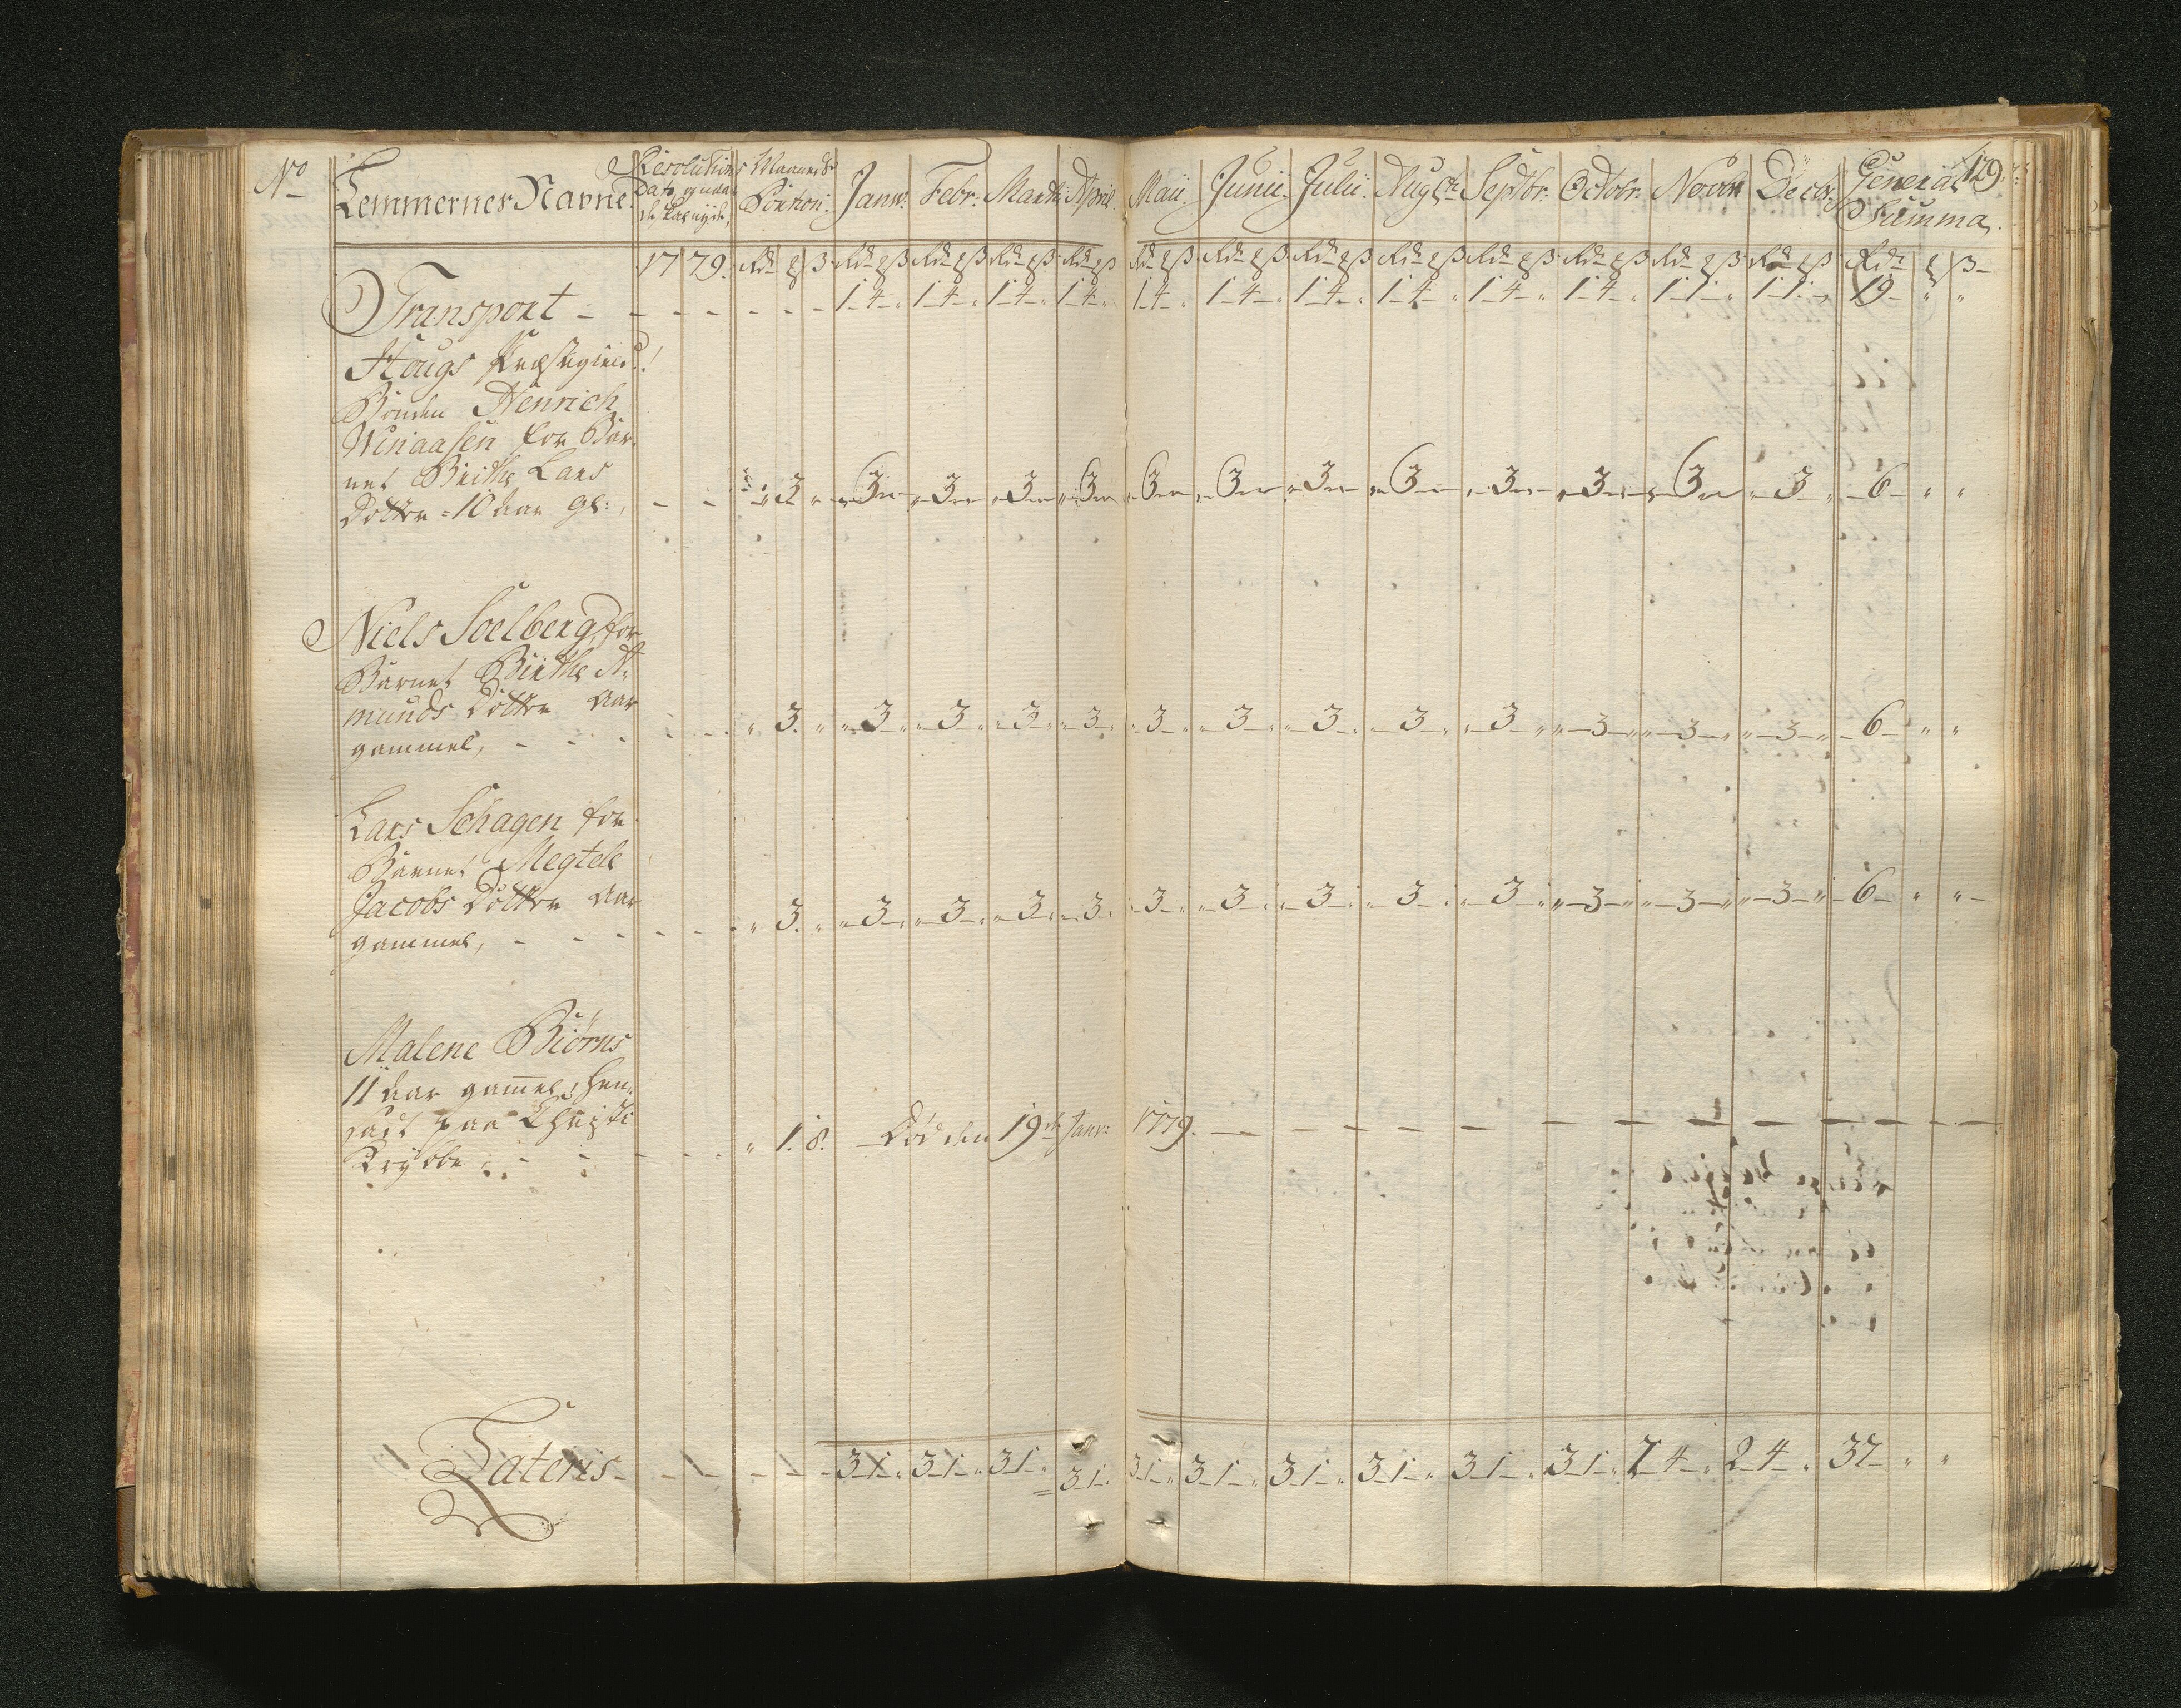 129.
No Lemmernes Navne. Resolutions Dato Maaneds Portion. Janv: Febr: Marti: April. Maii. Junii. Julii. Augstr: Septbr: Octobr: Novbr Decbr: General Summa.
17 79. Rdr ß Rdr ß Rdr ß Rdr ß Rdr ß Rdr ß Rdr ß Rdr ß Rdr ß Rdr ß Rdr ß Rdr ß Rdr ß Rdr ß
Transport - - - - - - 1 4 " 1 4 " 1 4 " 1 4 " 1 4 " 1 4 " 1 4 " 1 4 " 1 4 " 1 4 " 1 1 " 1 1 " 19 " "
Hougs Præstegield!
Bonden Henrich
Winaasen for Bar-
net Birthe Lars
Dotter - 10 Aar gl:, - - " 3 " " 3 " " 3 " " 3 " " 3 " " 3 " " 3 " " 3 " " 3 " " 3 " " 3 " " 3 " " 3 " 6 " "
Niels Soelberg, for
Barnet Birthe A-
munds Dotter Aar
gammel, - - - - " 3. " " 3 " " 3 " " 3 " " 3 " " 3 " " 3 " " 3 " " 3 " " 3 " " 3 " " 3 " " 3 " 6 " "
Lars Schagen for
Barnet Megtele
Jacobs Dotter Aar
gammel, - - - - " 3. " " 3 " " 3 " " 3 " " 3 " " 3 " " 3 " " 3 " " 3 " " 3 " " 3 " " 3 " " 3 " 6 " "
Malene Biörns
11 Aar gammel, hen-
sadt paa Christi
Krybbe, - - - - " 1. 8. - Död den 19de Janv: 1779. - - - - - - - -
Lateris - - - - 3 1 " 3 1 " 3 1 " 3 1 " 3 1 " 3 1 " 3 1 " 3 1 " 3 1 " 3 1 " 2 4 " 2 4 " 37 " "